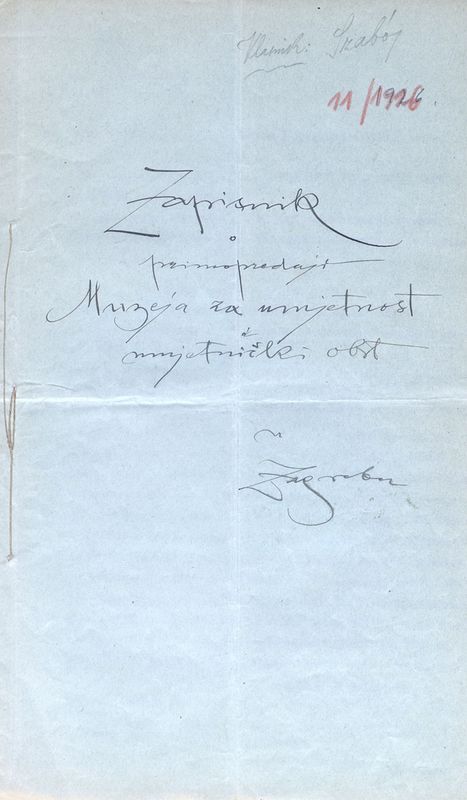 Szabó
11/1926.
Zapisnik
o
primopredaji
Muzeja za umjetnost
i
umjetnički obrt
u
Zagrebu